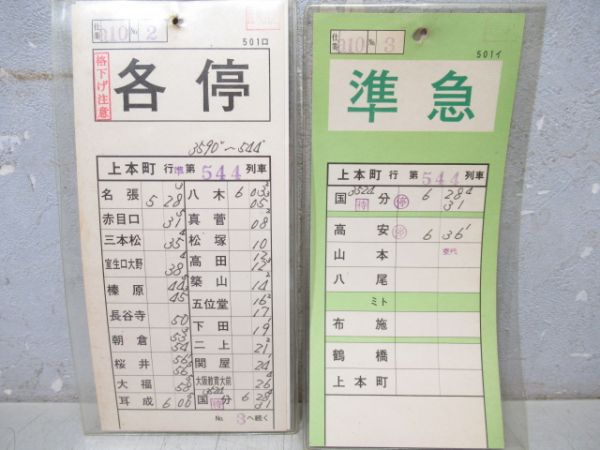 仕業 910 № 2
501ロ
格下げ注意
各停
3590〃〜544
上本町 行 準 第 544 列車
名張 5 28
赤目口 31
三本松 35
室生口大野 38
榛原 44 45
長谷寺 50
朝倉 53 54
桜井 56
大福 58
耳成 6 00
八木 6 03 05
真菅 08
松塚 10
高田 12 12
築山 14
五位堂 16 17
下田 19
二上 21
関屋 24
大阪教育大前 26
国分 352列 待 6 28 31
№ 3へ続く
仕業 910 № 3
501イ
準急
上本町 行 第 544 列車
国分 352列 待 停 6 28 31
高安 6 36
山本
八尾
ミト
布施
鶴橋
上本町